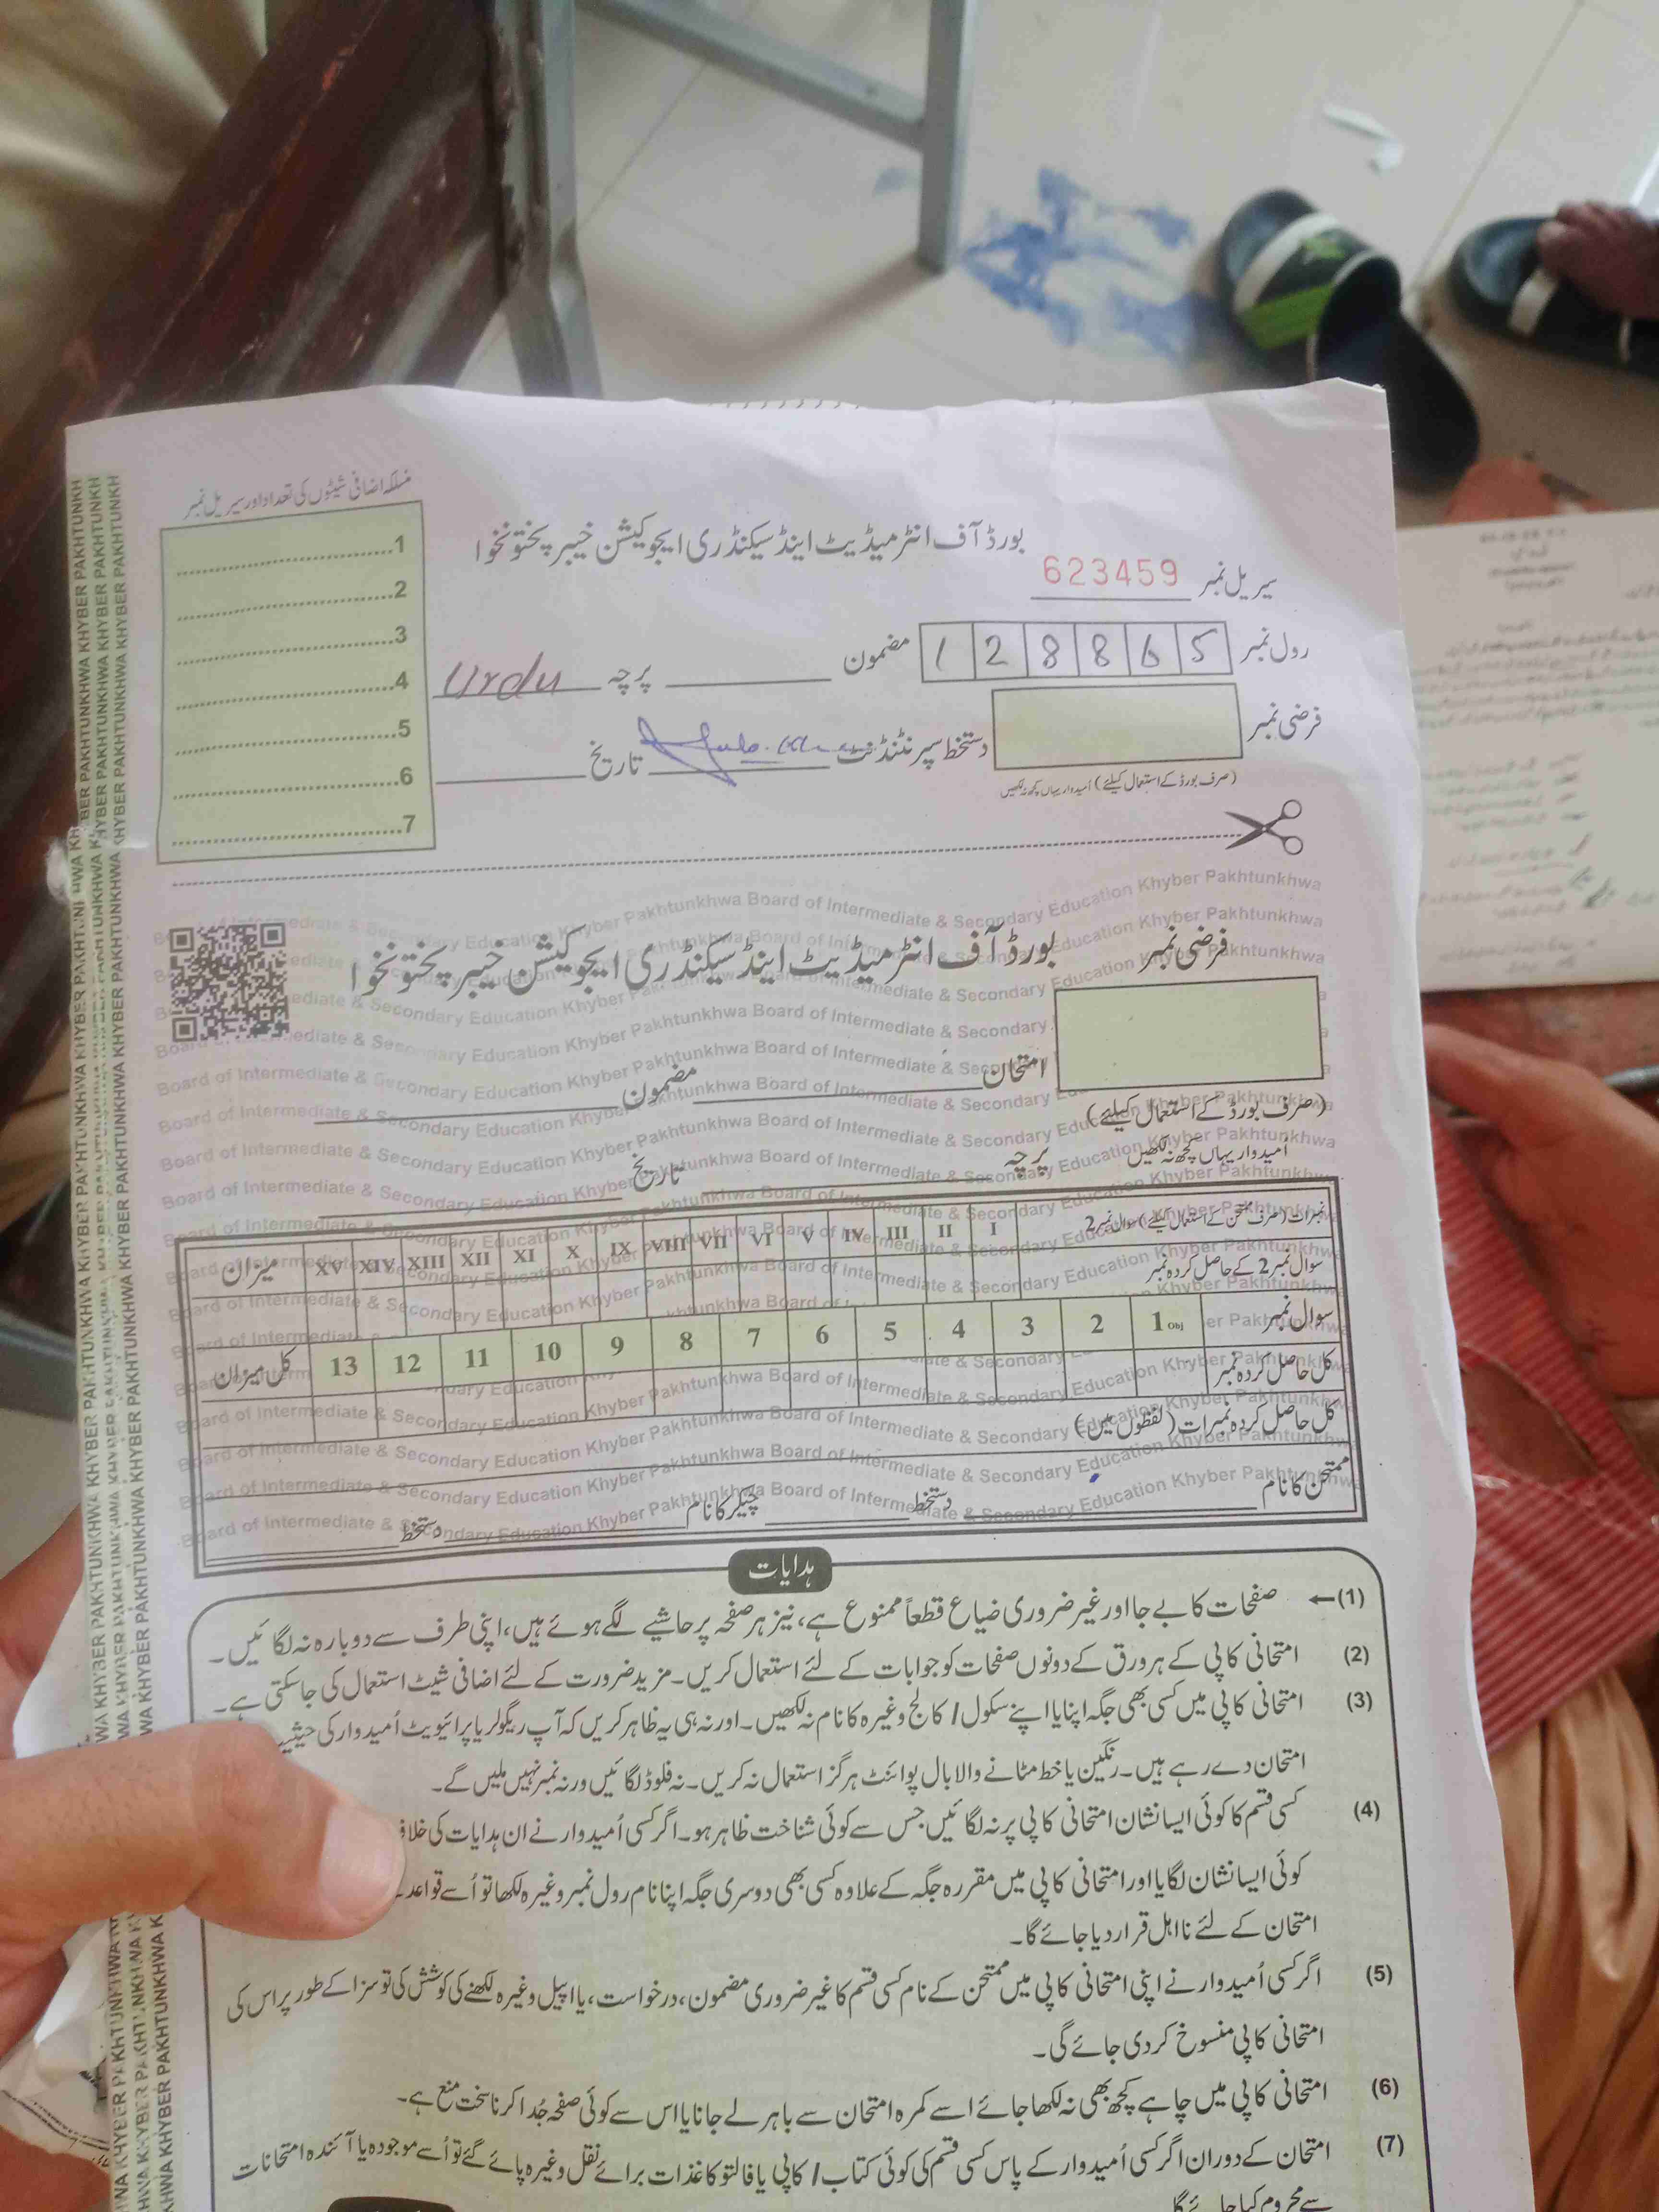 منسلکہ اضافی شیٹوں کی تعداد اور سیریل نمبر
1
2
3
4
5
6
7
بورڈ آف انٹرمیڈیٹ اینڈ سیکنڈری ایجوکیشن خیبر پختونخوا
سیریل نمبر 623459
رول نمبر 1 2 8 8 6 5 مضمون پرچہ Urdu
فرضی نمبر دستخط سپرنٹنڈنٹ تاریخ
(صرف بورڈ کے استعمال کیلئے) اُمیدوار یہاں کچھ نہ لکھیں
فرضی نمبر
بورڈ آف انٹرمیڈیٹ اینڈ سیکنڈری ایجوکیشن خیبر پختونخوا
امتحان مضمون
(صرف بورڈ کے استعمال کیلئے)
اُمیدوار یہاں کچھ نہ لکھیں
پرچہ تاریخ
نمبرات (صرف ممتحن کے استعمال کیلئے) سوال نمبر 2 I II III IV V VI VII VIII IX X XI XII XIII XIV XV میزان
سوال نمبر 2 کے حاصل کردہ نمبر
سوال نمبر 1 Obj 2 3 4 5 6 7 8 9 10 11 12 13 کل میزان
کل حاصل کردہ نمبر
کل حاصل کردہ نمبرات (لفظوں میں)
ممتحن کا نام دستخط چیکر کا نام دستخط
Board of Intermediate & Secondary Education Khyber Pakhtunkhwa
KHYBER PAKHTUNKHWA
ہدایات
(1)← صفحات کا بے جا اور غیر ضروری ضیاع قطعاً ممنوع ہے، نیز ہر صفحہ پر حاشیے لگے ہوئے ہیں، اپنی طرف سے دوبارہ نہ لگائیں۔
(2) امتحانی کاپی کے ہر ورق کے دونوں صفحات کو جوابات کے لئے استعمال کریں۔ مزید ضرورت کے لئے اضافی شیٹ استعمال کی جا سکتی ہے۔
(3) امتحانی کاپی میں کسی بھی جگہ اپنا یا اپنے سکول / کالج وغیرہ کا نام نہ لکھیں۔ اور نہ ہی یہ ظاہر کریں کہ آپ ریگولر یا پرائیویٹ اُمیدوار کی
امتحان دے رہے ہیں۔ رنگین یا خط مٹانے والا بال پوائنٹ ہرگز استعمال نہ کریں۔ نہ فلوڈ لگائیں ورنہ نمبر نہیں ملیں گے۔
(4) کسی قسم کا کوئی ایسا نشان امتحانی کاپی پر نہ لگائیں جس سے کوئی شناخت ظاہر ہو۔ اگر کسی اُمیدوار نے ان ہدایات کی
کوئی ایسا نشان لگایا اور امتحانی کاپی میں مقررہ جگہ کے علاوہ کسی بھی دوسری جگہ اپنا نام رول نمبر وغیرہ لکھا تو اُسے قواعد
امتحان کے لئے نااہل قرار دیا جائے گا۔
(5) اگر کسی اُمیدوار نے اپنی امتحانی کاپی میں ممتحن کے نام کسی قسم کا غیر ضروری مضمون، درخواست، یا اپیل وغیرہ لکھنے کی کوشش کی تو سزا کے طور پر اس کی
امتحانی کاپی منسوخ کر دی جائے گی۔
(6) امتحانی کاپی میں چاہے کچھ بھی نہ لکھا جائے اسے کمرہ امتحان سے باہر لے جانا یا اس سے کوئی صفحہ جُدا کرنا سخت منع ہے۔
(7) امتحان کے دوران اگر کسی اُمیدوار کے پاس کسی قسم کی کوئی کتاب / کاپی یا فالتو کاغذات برائے نقل وغیرہ پائے گئے تو اُسے موجودہ یا آئندہ امتحانات
سے محروم کیا جائے گا